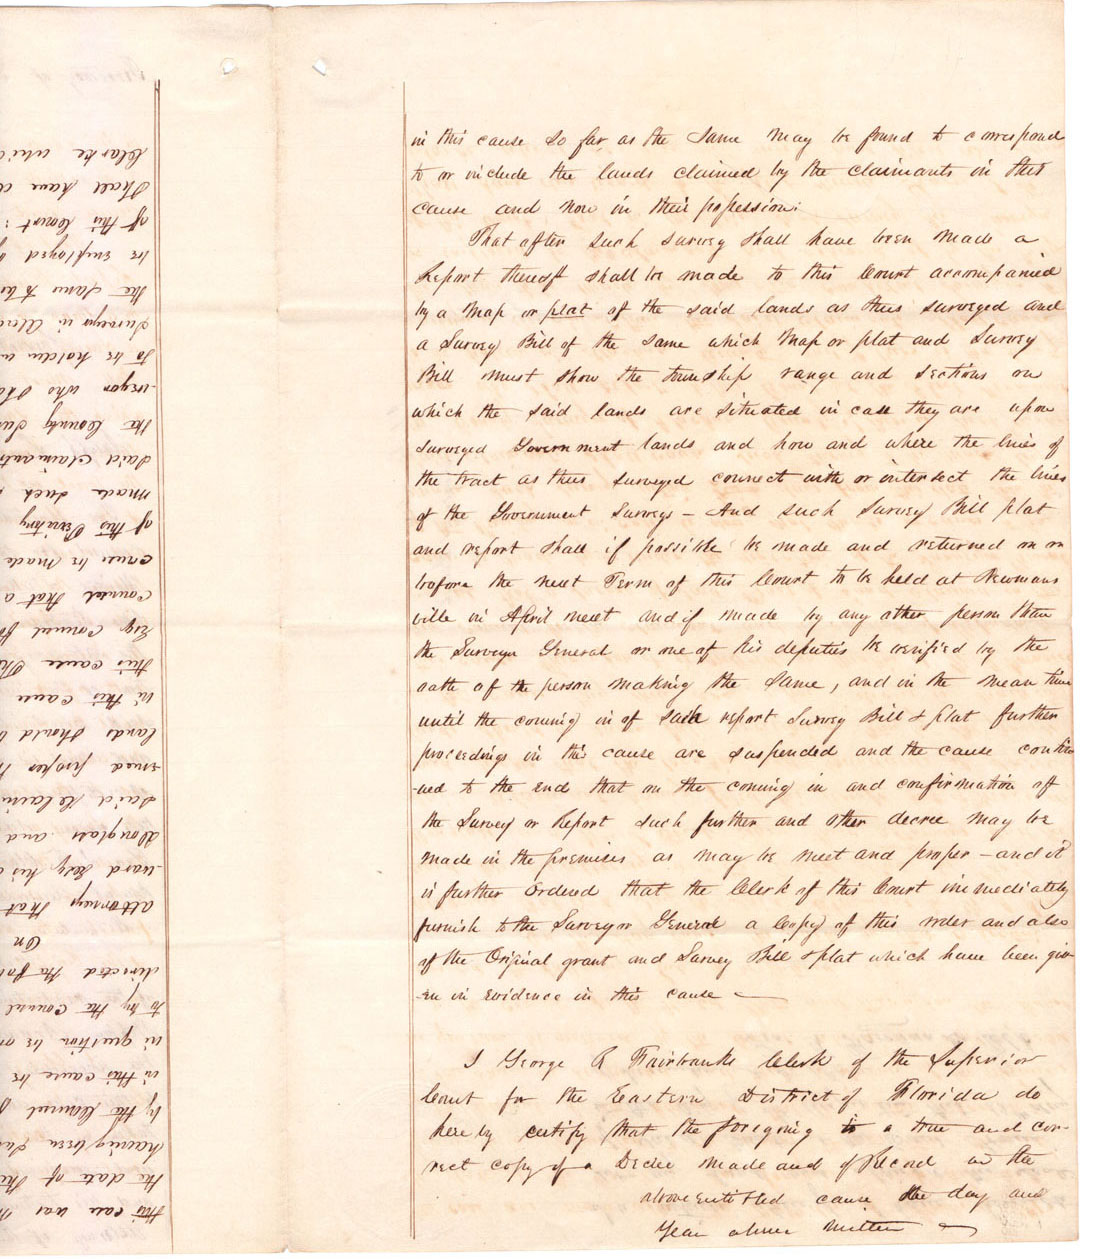 in this cause so far as the same may be found to correspond
to or include the lands claimed by the claimants in this
cause and now in their possession:
That after such survey shall have been made a
Report thereof shall be made to this Court accompanied
by a Map or plat of the said lands as thus surveyed and
a Survey Bill of the same which Map or plat and Survey
Bill must show the township range and sections on
which the said lands are situated in case they are upon
surveyed Government lands and how and where the lines of
the tract as thus surveyed connect with or intersect the lines
of the Government Surveys – And such Survey Bill plat
and report shall if possible be made and returned on or
before the next Term of this Court to be held at Newmans
ville in April next and if made by any other person than
the Surveyor General or one of his deputies be verified by the
oath of the person making the same, and in the mean time
until the coming in of said report Survey Bill & plat further
proceedings in this cause are suspended and the cause contin
-ued to the end that on the coming in and confirmation of
the Survey or Report such further and other decree may be
made in the premises as may be meet and proper – and it
is further ordered that the Clerk of this Court immediately
furnish to the Surveyor General a Copy of this order and also
of the Original grant and Survey Bill & plat which have been giv-
en in evidence in this cause —
I George R Fairbanks Clerk of the Superior
Court for the Eastern District of Florida do
here by certify that the foregoing is a true and cor-
rect copy of a Decree made and of Record in the
above entitled cause the day and
Year above written —
this case was
the date of the
having been
by the Counsel
in this cause be
in question be
to by the Counsel
directed the
On
attorney that
-ward Esq his
Douglass and
said Claim
-ened proper
lands should
in this cause
this cause
Esq Counsel
counsel that a
cruce be made
of this Territory
made such
said claimants
the County Sur
-veyor who sha
to be holden
Surveyor in
the same to
be employed
of this Court
shall have
Clarke whi